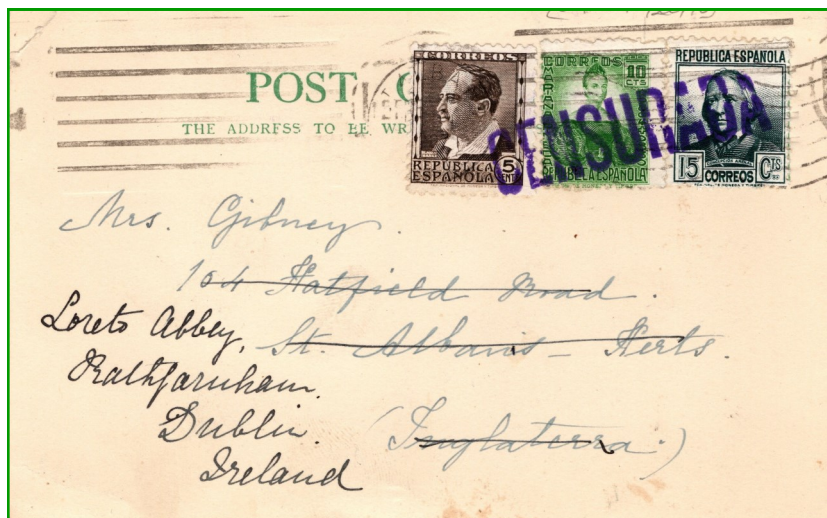 POST C
THE ADDRESS TO BE WR
CORREOS
REPUBLICA
ESPAÑOLA
5
CORREOS
10
CTS
REPUBLICA ESPAÑOLA
REPUBLICA ESPAÑOLA
15
CORREOS
CTS
CENSURADA
Mrs. Gibney.
104 Hatfield Road.
St. Albans - Herts.
(Inglaterra.)
Loreto Abbey,
Rathfarnham.
Dublin.
Ireland